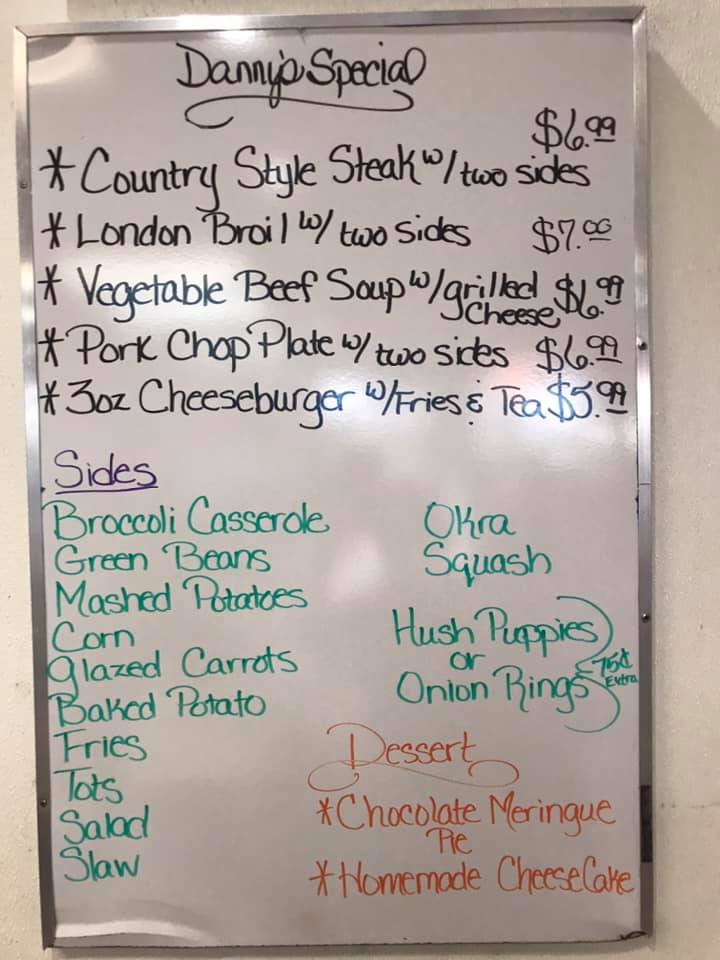 Danny's Special
$6.99
* Country Style Steak w/ two sides
* London Broil w/ two sides $7.00
* Vegetable Beef Soup w/ grilled $6.99
Cheese
* Pork Chop Plate w/ two sides $6.99
* 3oz Cheeseburger w/ Fries & Tea $5.99
Sides
Broccoli Casserole
Green Beans
Mashed Potatoes
Corn
Glazed Carrots
Baked Potato
Fries
Tots
Salad
Slaw
Okra
Squash
Hush Puppies
or
Onion Rings
75¢
Extra
Dessert
* Chocolate Meringue
Pie
* Homemade CheeseCake